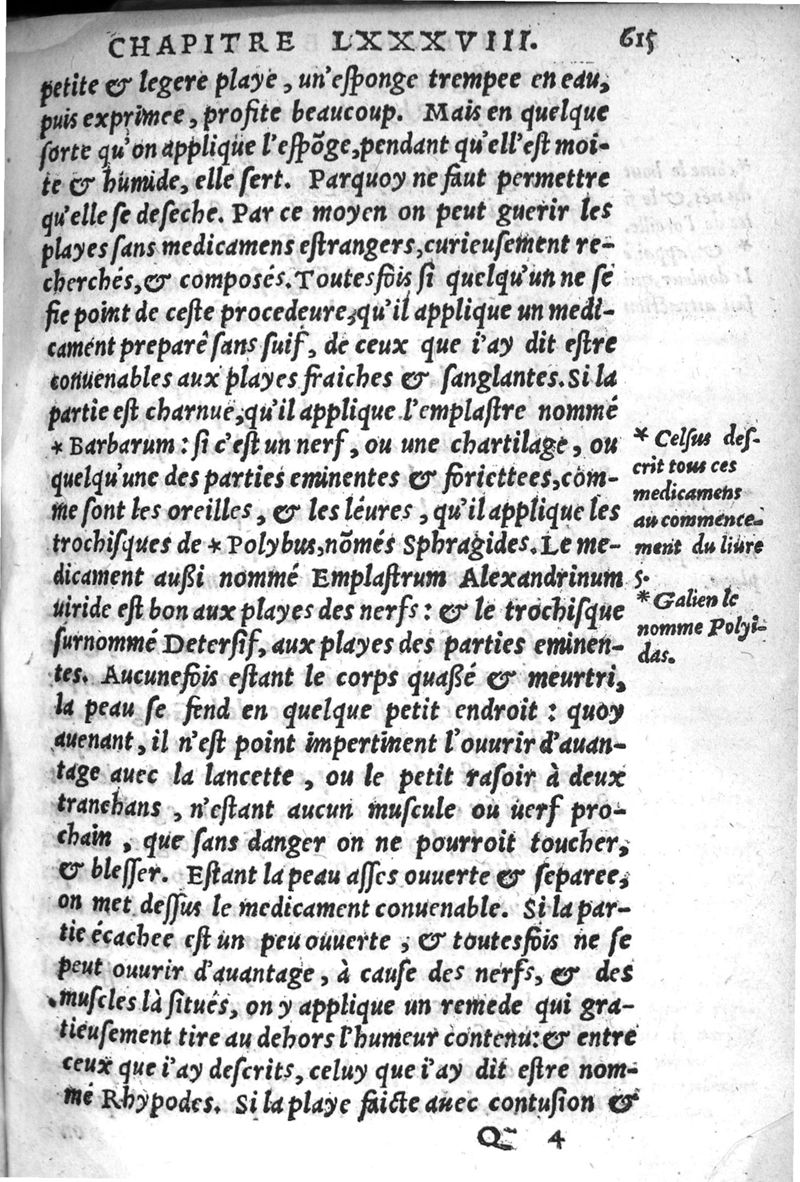 CHAPITRE LXXXVIII. 615
petite & legere playe, un'eſponge trempee en eau,
puis exprimee, profite beaucoup. Mais en quelque
ſorte qu'on applique l'eſpõge, pendant qu'ell'eſt moi-
te & humide, elle ſert. Parquoy ne faut permettre
qu'elle ſe deſeche. Par ce moyen on peut guerir les
playes ſans medicamens eſtrangers, curieuſement re-
cherchés, & composés. Toutesfois ſi quelqu'un ne ſe
fie point de ceſte procedeure, qu'il applique un medi-
cament preparê ſans ſuif, de ceux que i'ay dit eſtre
conuenables aux playes fraiches & ſanglantes. Si la
partie eſt charnue, qu'il applique l'emplaſtre nommé
* Barbarum : ſi c'eſt un nerf, ou une chartilage, ou
quelqu'une des parties eminentes & foriettees, com-
me ſont les oreilles, & les léures, qu'il applique les
trochiſques de * Polybus, nõmés Sphragides. Le me-
dicament außi nommé Emplaſtrum Alexandrinum
uiride eſt bon aux playes des nerfs : & le trochiſque
ſurnommé Deterſif, aux playes des parties eminen-
tes. Aucunefois eſtant le corps quaßé & meurtri,
la peau ſe fend en quelque petit endroit : quoy
auenant, il n'eſt point impertinent l'ouurir d'auan-
tage auec la lancette, ou le petit raſoir à deux
tranchans, n'eſtant aucun muſcule ou uerf pro-
chain, que ſans danger on ne pourroit toucher,
& bleſſer. Eſtant la peau aſſes ouuerte & ſeparee,
on met deſſus le medicament conuenable. Si la par-
tie écachee eſt un peu ouuerte ; & toutesfois ne ſe
peut ouurir d'auantage, à cauſe des nerfs, & des
muſcles là ſitués, on y applique un remede qui gra-
tieuſement tire au dehors l'humeur contenu: & entre
ceux que i'ay deſcrits, celuy que i'ay dit eſtre nom-
mé Rhypodes. Si la playe faicte auec contuſion &
Q 4
* Celſus deſ-
crit tous ces
medicamens
au commence-
ment du liure
5.
* Galien le
nomme Polyi-
das.